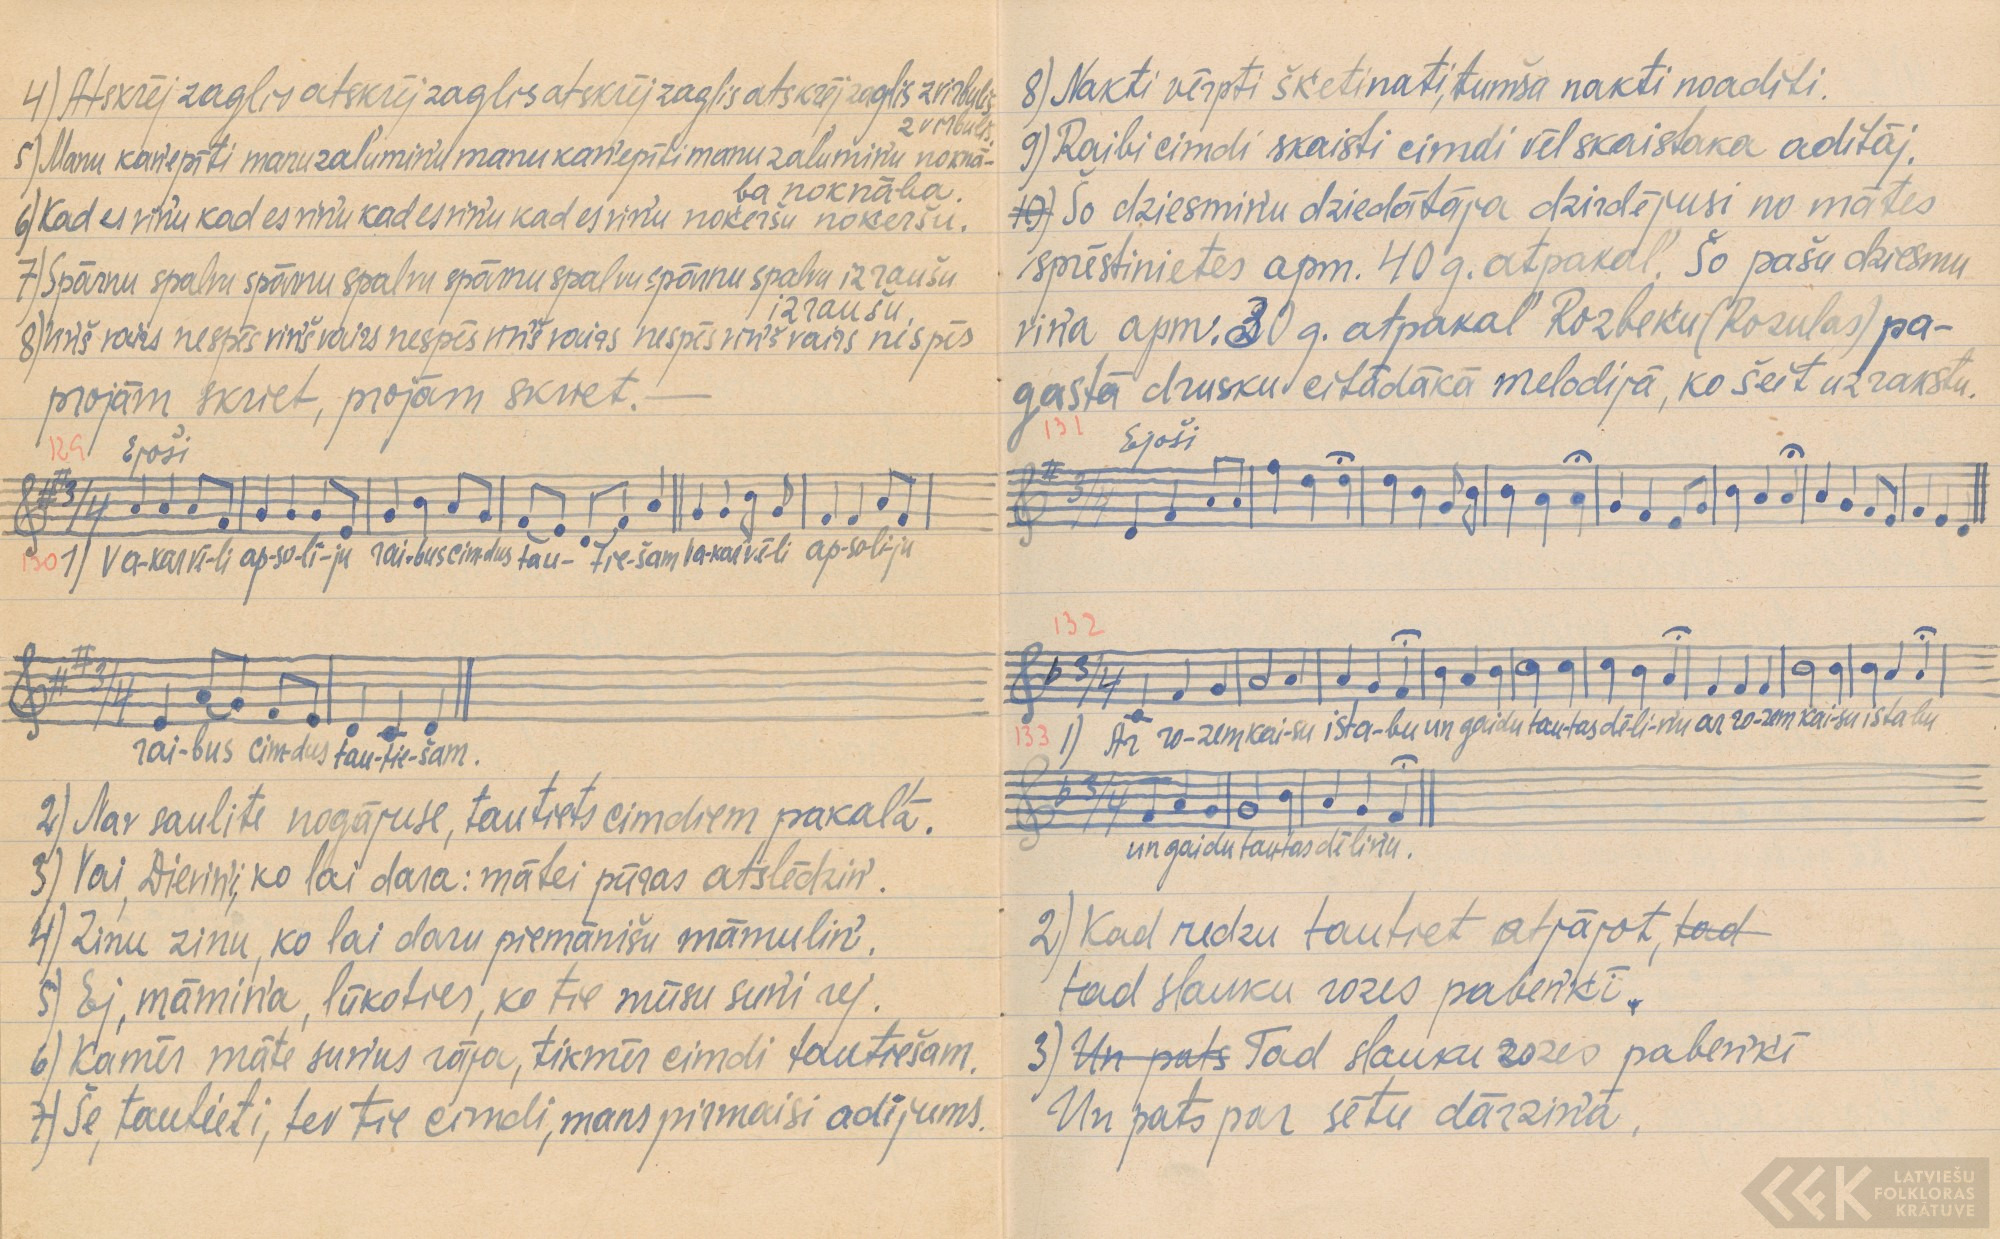 4) Atskrēj zaglis atskrēj zaglis atskrēj zaglis atskrēj zaglis zvirbulis
zvirbulis.
5) Manu kaņepīti manu zaļumiņu manu kaņepīti manu zaļumiņu noknā-
ba noknāba.
6) Kad es viņu kad es viņu kad es viņu kad es viņu noķeršu noķeršu.
7) Spārnu spalvu spārnu spalvu spārnu spalvu spārnu spalvu izraušu
izraušu.
8) Viņš vairs nespēs viņš vairs nespēs viņš vairs nespēs viņš vairs nespēs
projām skriet, projām skriet. —
129 Ejoši
3/4
130 1) Va-kar vē-li ap-so-lī-ju rai-bus cim-dus tau- tie-šam va-kar vē-li ap-so-lī-ju
3/4
rai-bus cim-dus tau-tie-šam.
2) Nav saulīte nogājuse, tautiets cimdiem pakaļā.
3) Vai, Dieviņ, ko lai dara: mātei pūras atslēdziņ'.
4) Zinu zinu, ko lai daru piemānīšu māmuliņ'.
5) Ej, māmiņa, lūkoties, ko tie mūsu suņi rej.
6) Kamēr māte suņus rāja, tikmēr cimdi tautiešam.
7) Še, tautieti, tev tie cimdi, mans pirmaisi adījums.
8) Nakti vērpti šķetināti, tumša nakti noadīti.
9) Raibi cimdi skaisti cimdi vēl skaistaka adītāj.
10) Šo dziesmiņu dziedātāja dzirdējusi no mātes
sprēstiņietes apm. 40 g. atpakaļ. Šo pašu dziesmu
viņa apm. 30 g. atpakaļ Rozbeķu (Rozulas) pa-
gastā drusku citādākā melodijā, ko šeit uzrakstu.
131 Ejoši
3/4
132
3/4
133 1) Ar ro-zem kai-su ista-bu un gaidu tau-tas dē-li-ņu ar ro-zem kai-su istabu
3/4
un gaidu tautas dēliņu.
2) Kad redzu tautiet atjājot, tad
tad slauku rozes pabeņķī.
3) Un pats Tad slauku rozes pabeņķī
Un pats par sētu dārziņā.
LATVIEŠU
FOLKLORAS
KRĀTUVE